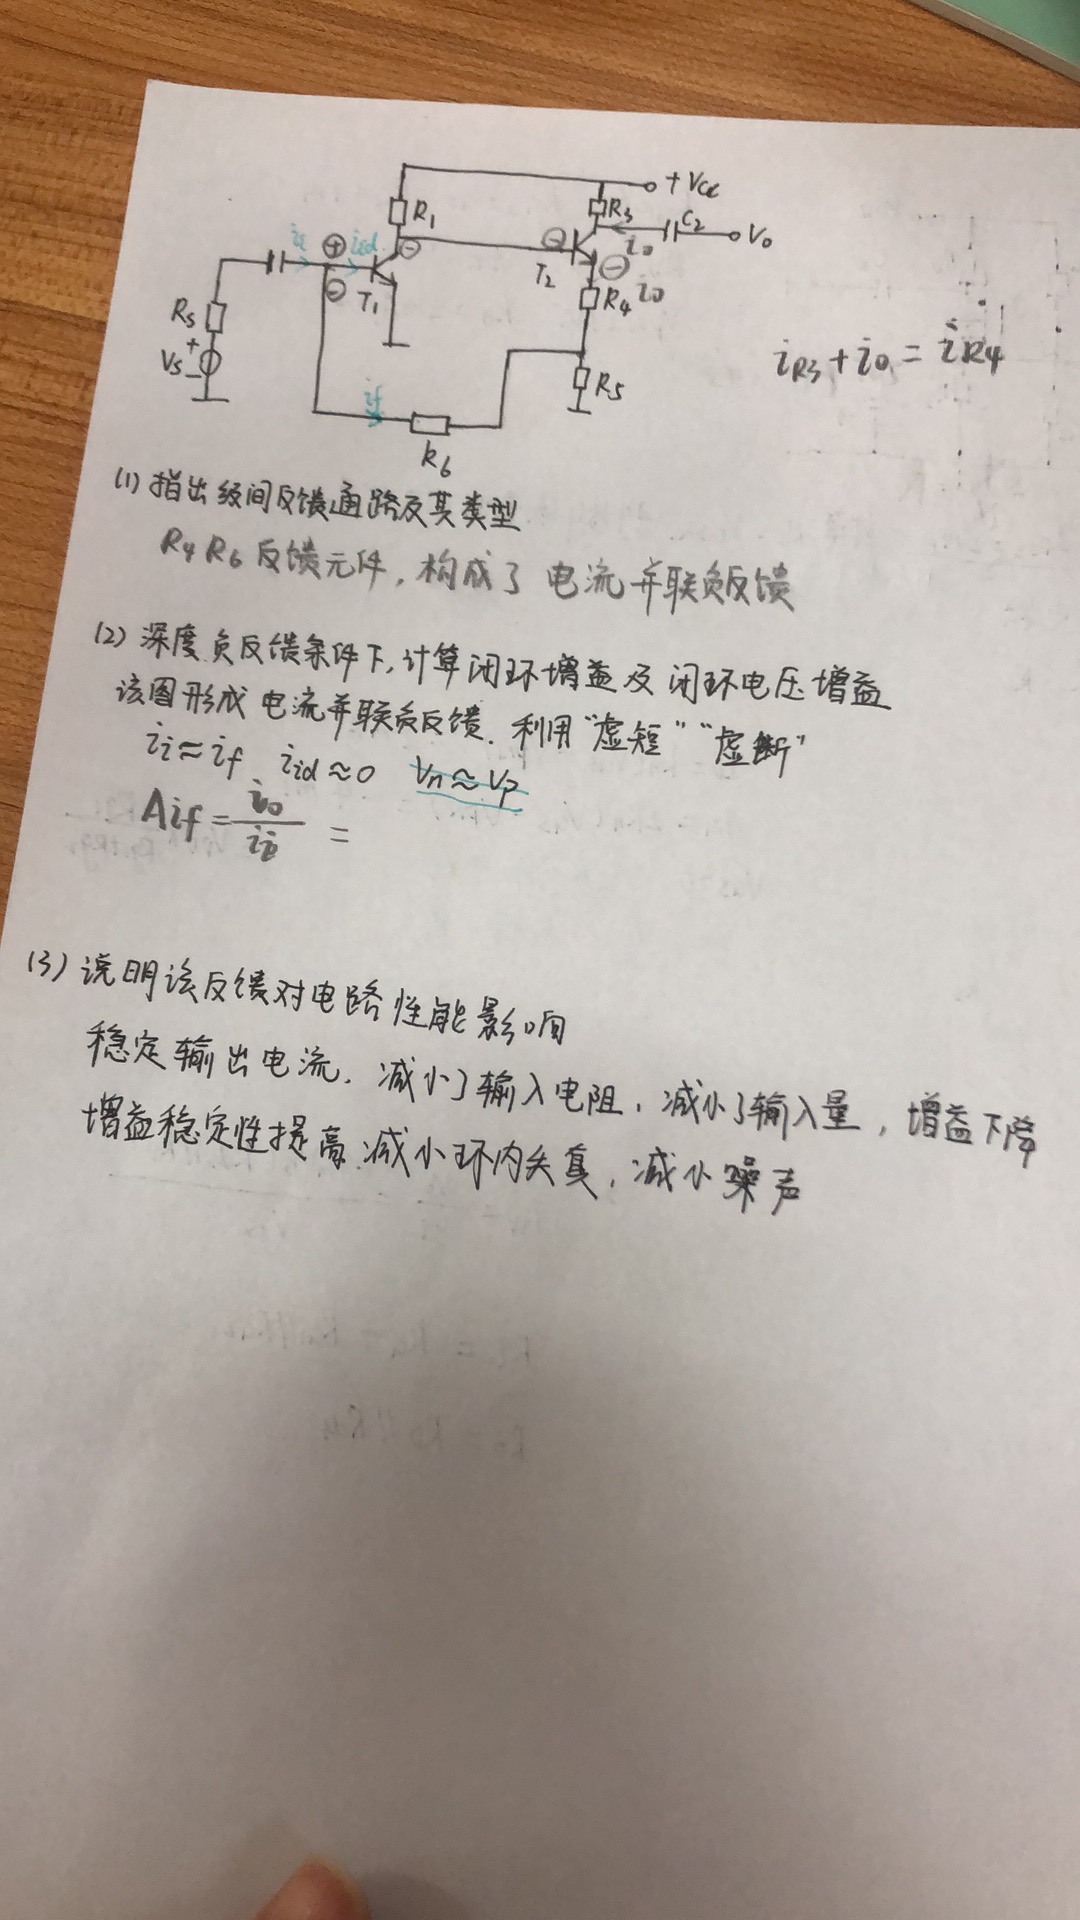 +Vcc
R1
R3
C2
Vo
io
ii
⊕
iid
⊖
⊖
T1
T2
⊖
R4 io
Rs
+
Vs
-
R5
if
R6
iR3+io=iR4
(1) 指出级间反馈通路及其类型
R4 R6 反馈元件,构成了 电流并联负反馈
(2) 深度负反馈条件下,计算闭环增益及闭环电压增益
该图形成 电流并联负反馈. 利用"虚短""虚断"
ii≈if、iid≈0 Vn≈Vp
Aif=io/ii =
(3) 说明该反馈对电路性能影响
稳定输出电流.减小了输入电阻,减小了输入量,增益下降
增益稳定性提高.减小环内失真,减小噪声